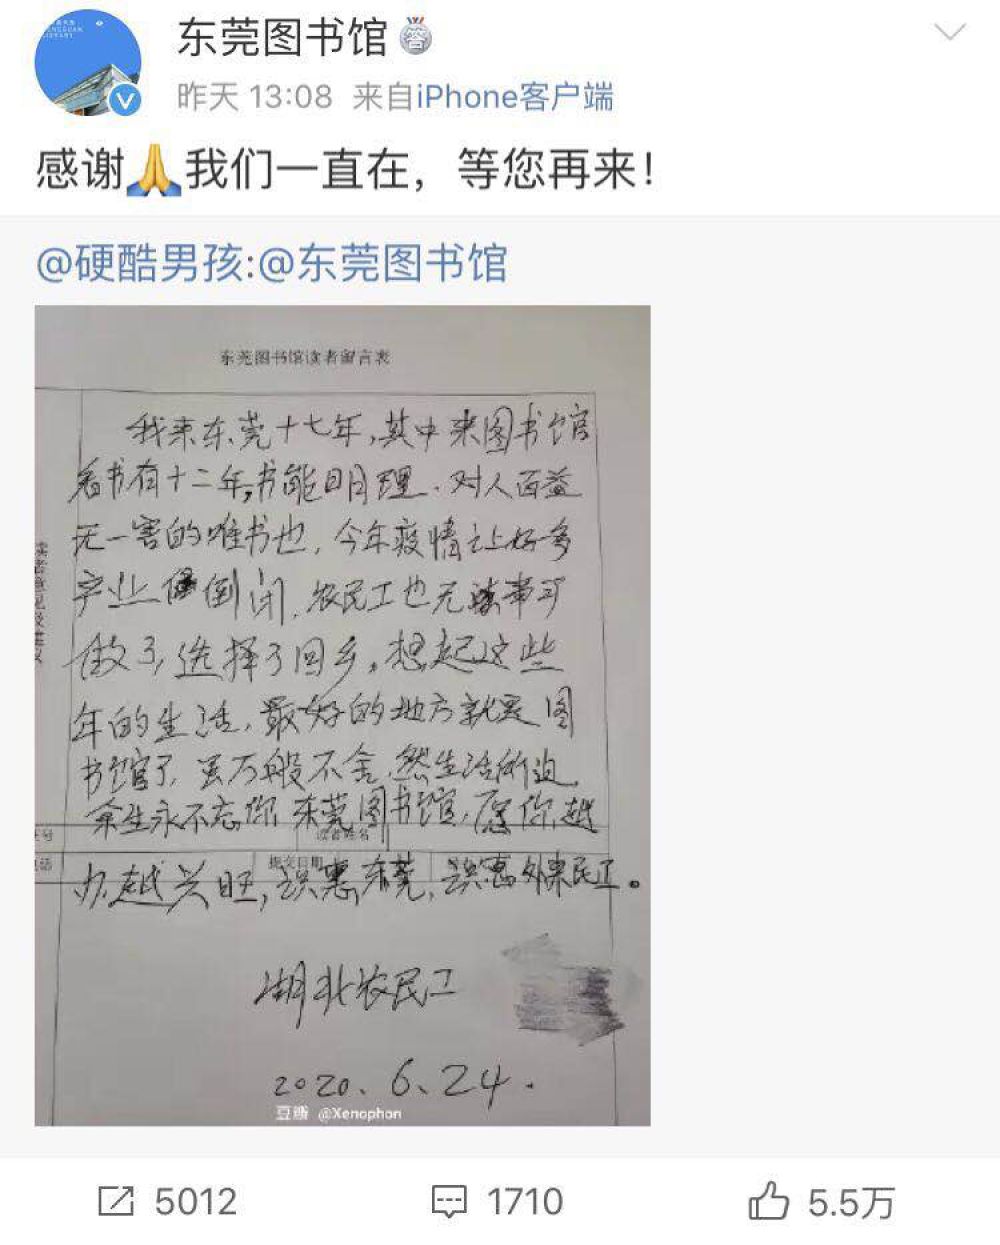 东莞图书馆
昨天 13:08 来自iPhone客户端
感谢🙏我们一直在，等您再来！
@硬酷男孩:@东莞图书馆
东莞图书馆读者留言表
我来东莞十七年，其中来图书馆
看书有十二年，书能明理，对人百益
无一害的唯书也，今年疫情让好多
产业倒闭，农民工也无事可
做了，选择了回乡。想起这些
年的生活，最好的地方就是图
书馆了，虽万般不舍，然生活所迫，
余生永不忘你，东莞图书馆，愿你越
办越兴旺，识惠东莞，识惠外来民工。
提交日期
湖北农民工
2020.6.24.
豆瓣 @Xenophon
5012 1710 5.5万